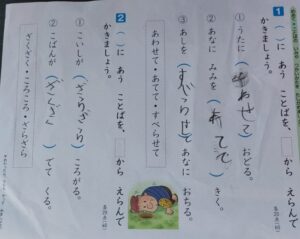 1 （ ）に あう ことばを、 から えらんで
かきましょう。
① うたに （あわせて） おどる。
② あなに みみを （あてて） きく。
③ あしを （すべらせて） あなに おちる。
各20点(60)
あわせて・あてて・すべらせて
2 （ ）に あう ことばを、 から えらんで
かきましょう。
① こいしが （ざらざら） ころがる。
② こばんが （ざくざく） でて くる。
各20点(40)
ざくざく・ころころ・ざらざら